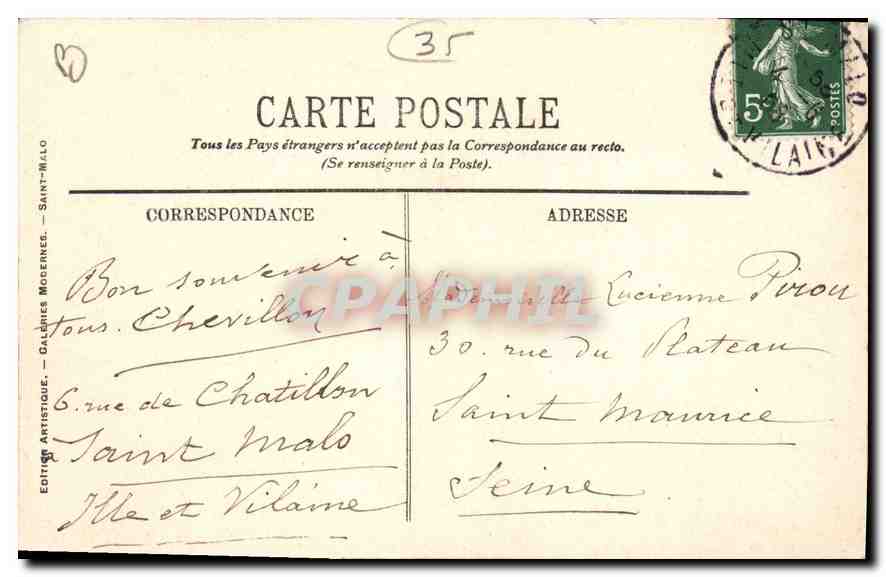 35
B
CARTE POSTALE
Tous les Pays étrangers n'acceptent pas la Correspondance au recto.
(Se renseigner à la Poste).
5c
POSTES
VILAINE
EDITION ARTISTIQUE. — GALERIES MODERNES. — SAINT-MALO
CORRESPONDANCE
Bon souvenir à
tous. Chevillon
6. rue de Chatillon
à Saint Malo
Ille et Vilaine
ADRESSE
Mademoiselle Lucienne Pirou
30. rue du Plateau
Saint Maurice
Seine
CPAPHIL